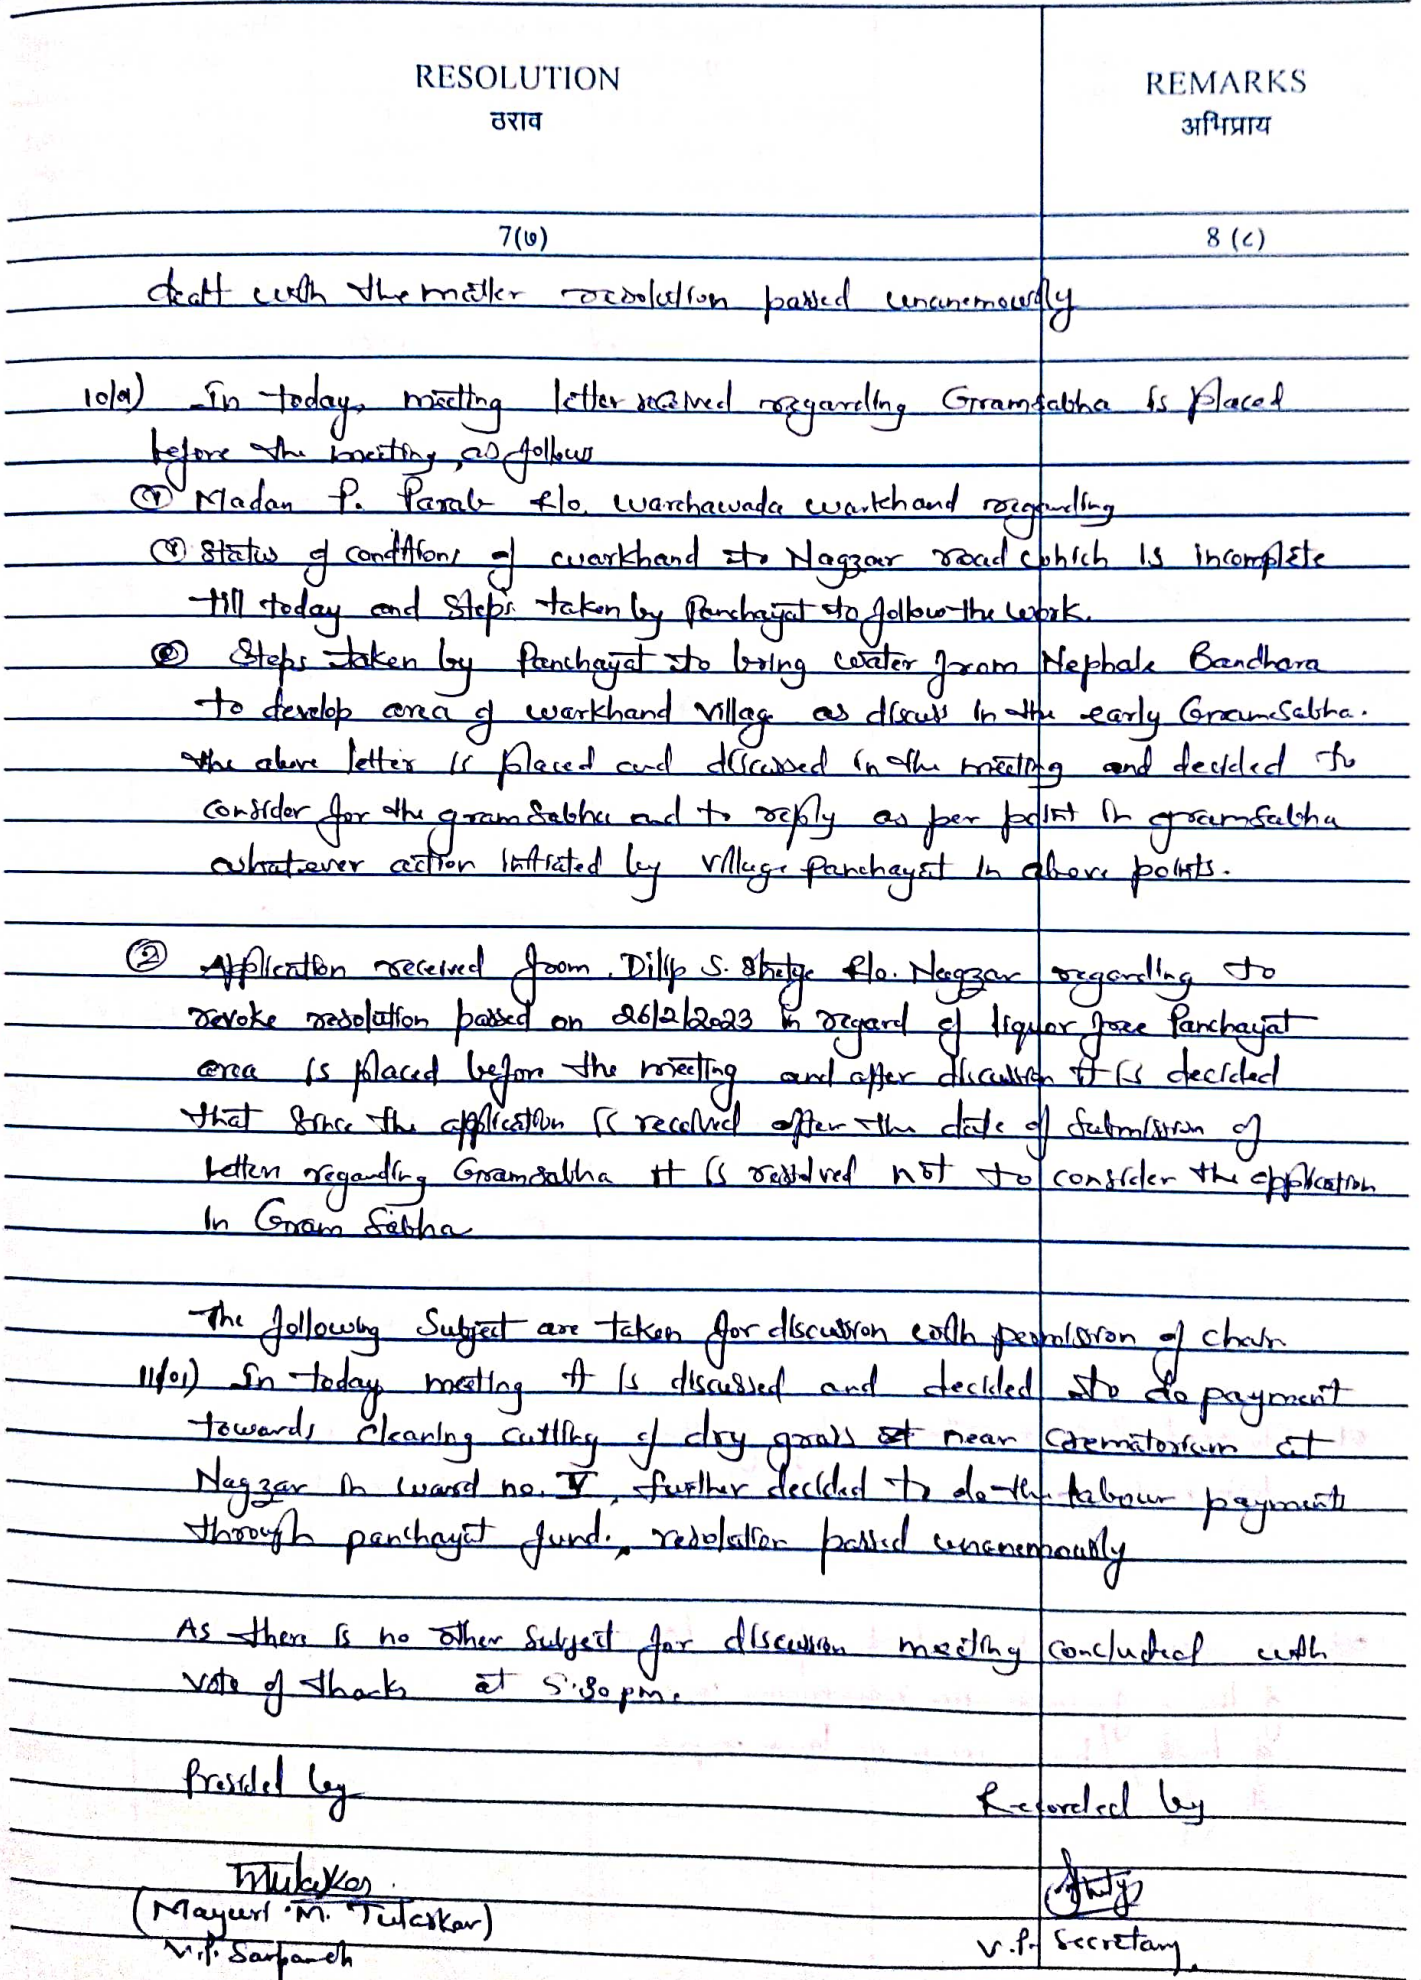 RESOLUTION
ठराव
REMARKS
अभिप्राय
7(७)
8 (८)
dealt with the matter resolution passed unanemously
10/a) In today, meeting letter received regarding Gramsabha is placed
before the meeting, as follows
① Madan P. Parab R/o. warchawada warkhand regarding
① Status of conditions of warkhand to Nagzar road which is incomplete
till today and steps taken by Panchayat to follow the work.
② Steps taken by Panchayat to bring water from Nephale Bandhara
to develop area of warkhand village as discuss in the early Gramsabha.
the above letter is placed and discussed in the meeting and decided to
consider for the gramsabha and to reply as per point in gramsabha
whatever action initiated by village panchayat in above points.
② Application received from Dilip S. Shetye R/o. Nagzar regarding to
revoke resolution passed on 26/2/2023 in regard of liquor free Panchayat
area is placed before the meeting and after discussion it is decided
that since the application is received after the date of submission of
letter regarding Gramsabha it is resolved not to consider the application
in Gram Sabha
The following Subject are taken for discussion with permission of chair
11/01) In today meeting it is discussed and decided to do payment
towards cleaning cutting of dry grass at near Crematorium at
Nagzar in ward no. V, further decided to do the labour payment
through panchayat fund., resolution passed unanemously
As there is no other subject for discussion meeting concluded with
vote of thanks at 5:30 pm.
Presided by
Recorded by
(Mayuri M. Tulaskar)
V.P. Sarpanch
V.P. Secretary